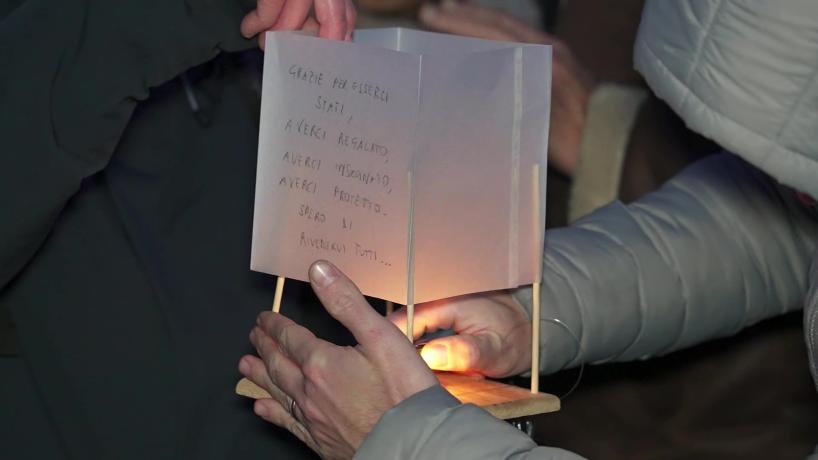 GRAZIE PER ESSERCI
STATI,
AVERCI REGALATO,
AVERCI INSEGNATO,
AVERCI PROTETTO.
SPERO DI
RIVEDERVI TUTTI...